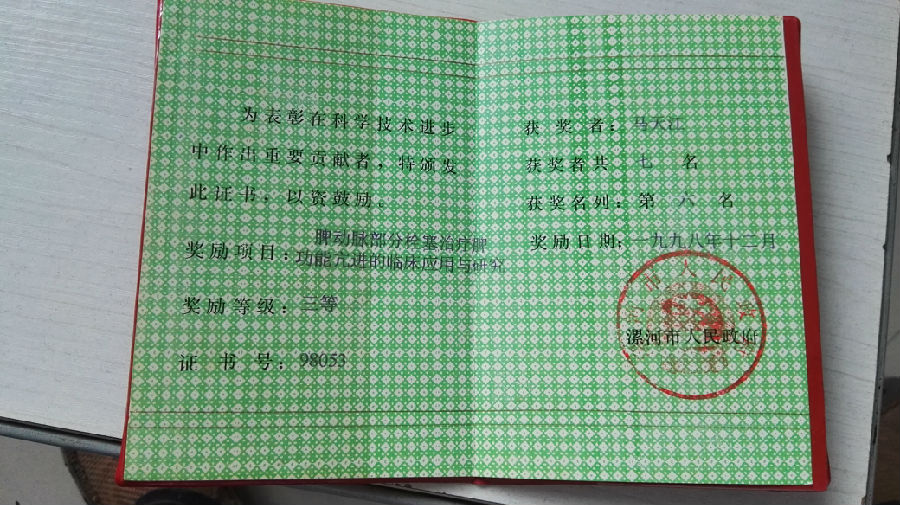 为表彰在科学技术进步
中作出重要贡献者，特颁发
此证书，以资鼓励。
奖励项目：脾动脉部分栓塞治疗脾
功能亢进的临床应用与研究
奖励等级：三等
证书号：98053
获奖者：马天江
获奖者共 七 名
获奖名列：第 六 名
奖励日期：一九九八年十二月
漯河市人民政府